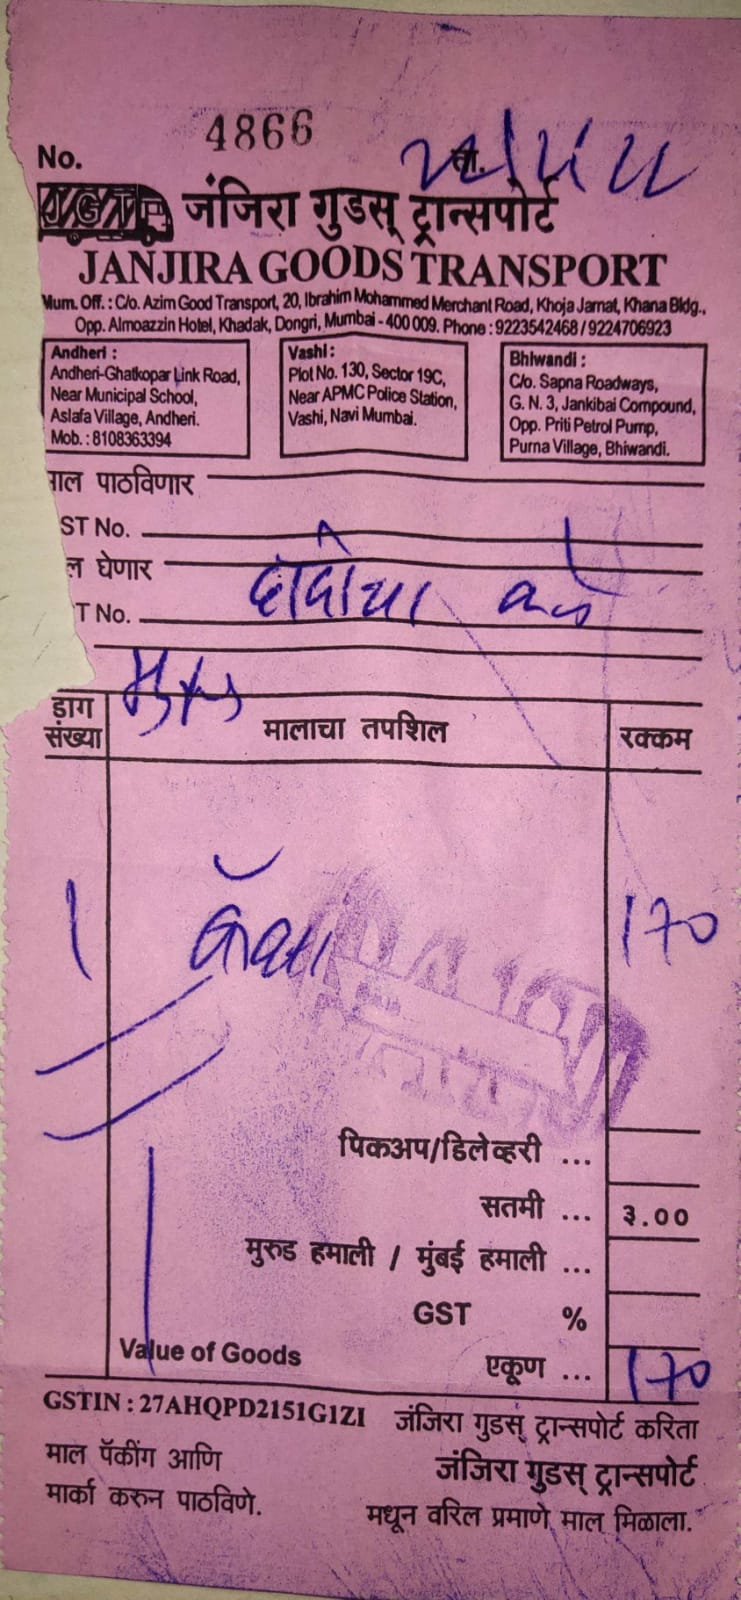 No. 4866 ता.
JGT जंजिरा गुडस् ट्रान्सपोर्ट
JANJIRA GOODS TRANSPORT
Mum. Off. : C/o. Azim Good Transport, 20, Ibrahim Mohammed Merchant Road, Khoja Jamat, Khana Bldg.,
Opp. Almoazzin Hotel, Khadak, Dongri, Mumbai - 400 009. Phone : 9223542468 / 9224706923
Andheri :
Andheri-Ghatkopar Link Road,
Near Municipal School,
Aslafa Village, Andheri.
Mob. : 8108363394
Vashi :
Plot No. 130, Sector 19C,
Near APMC Police Station,
Vashi, Navi Mumbai.
Bhiwandi :
C/o. Sapna Roadways,
G. N. 3, Jankibai Compound,
Opp. Priti Petrol Pump,
Purna Village, Bhiwandi.
माल पाठविणार
ST No.
ल घेणार
T No.
डाग संख्या मालाचा तपशिल रक्कम
1 170
पिकअप/डिलेव्हरी ...
सतमी ... ३.००
मुरुड हमाली / मुंबई हमाली ...
GST %
Value of Goods एकूण ... 170
GSTIN : 27AHQPD2151G1ZI जंजिरा गुडस् ट्रान्सपोर्ट करिता
माल पॅकींग आणि जंजिरा गुडस् ट्रान्सपोर्ट
मार्का करुन पाठविणे. मधून वरिल प्रमाणे माल मिळाला.